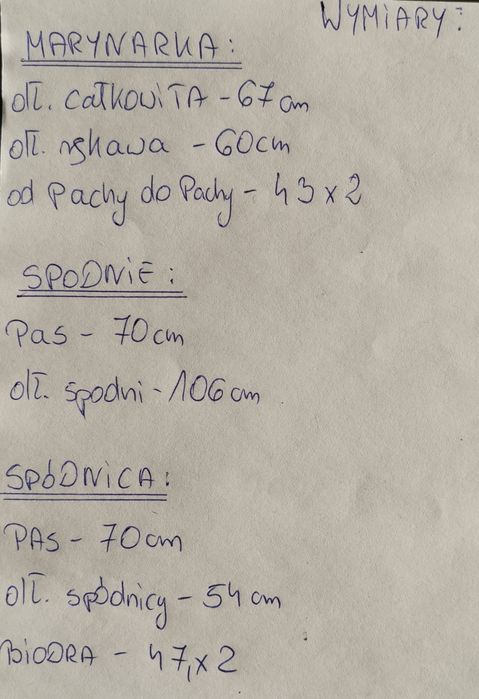 WYMIARY:
MARYNARKA:
dł. CAŁKOWITA - 67 cm
dł. rękawa - 60cm
od Pachy do Pachy - 43 x 2
SPODNIE:
Pas - 70cm
dł. spodni - 106cm
SPÓDNICA:
PAS - 70cm
dł. spódnicy - 54 cm
BIODRA - 47, x 2